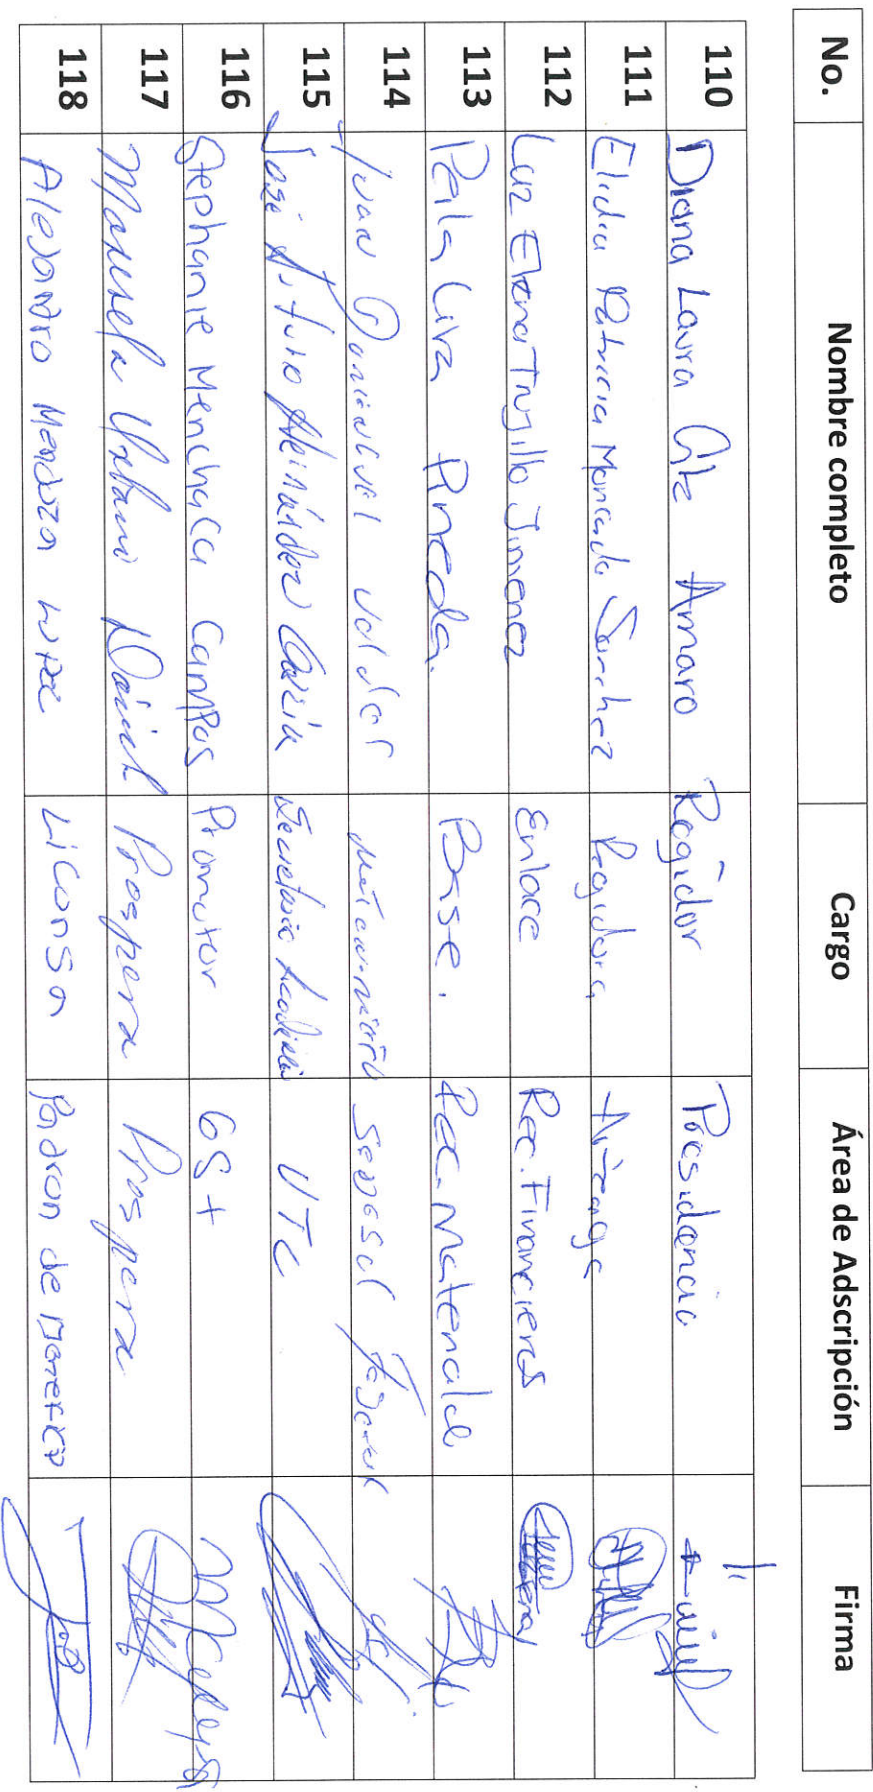 No. Nombre completo Cargo Área de Adscripción Firma
110 Diana Laura Gtz Amaro Regidor Presidencia
111 Elidia Patricia Moncada Sanchez Regidora
112 Luz Elena Trujillo Jimenez Enlace Rec. Financieros
113 Perla Liva Pineda. Base. Rec. Materiales
114 Juan
115 José Arturo Hernández García Secretario Académico UTC
116 Stephanie Menchaca Campos Promotor 65+
117 Manuela Prospera Prospera
118 Alejandro Mendoza Liconsa Padron de